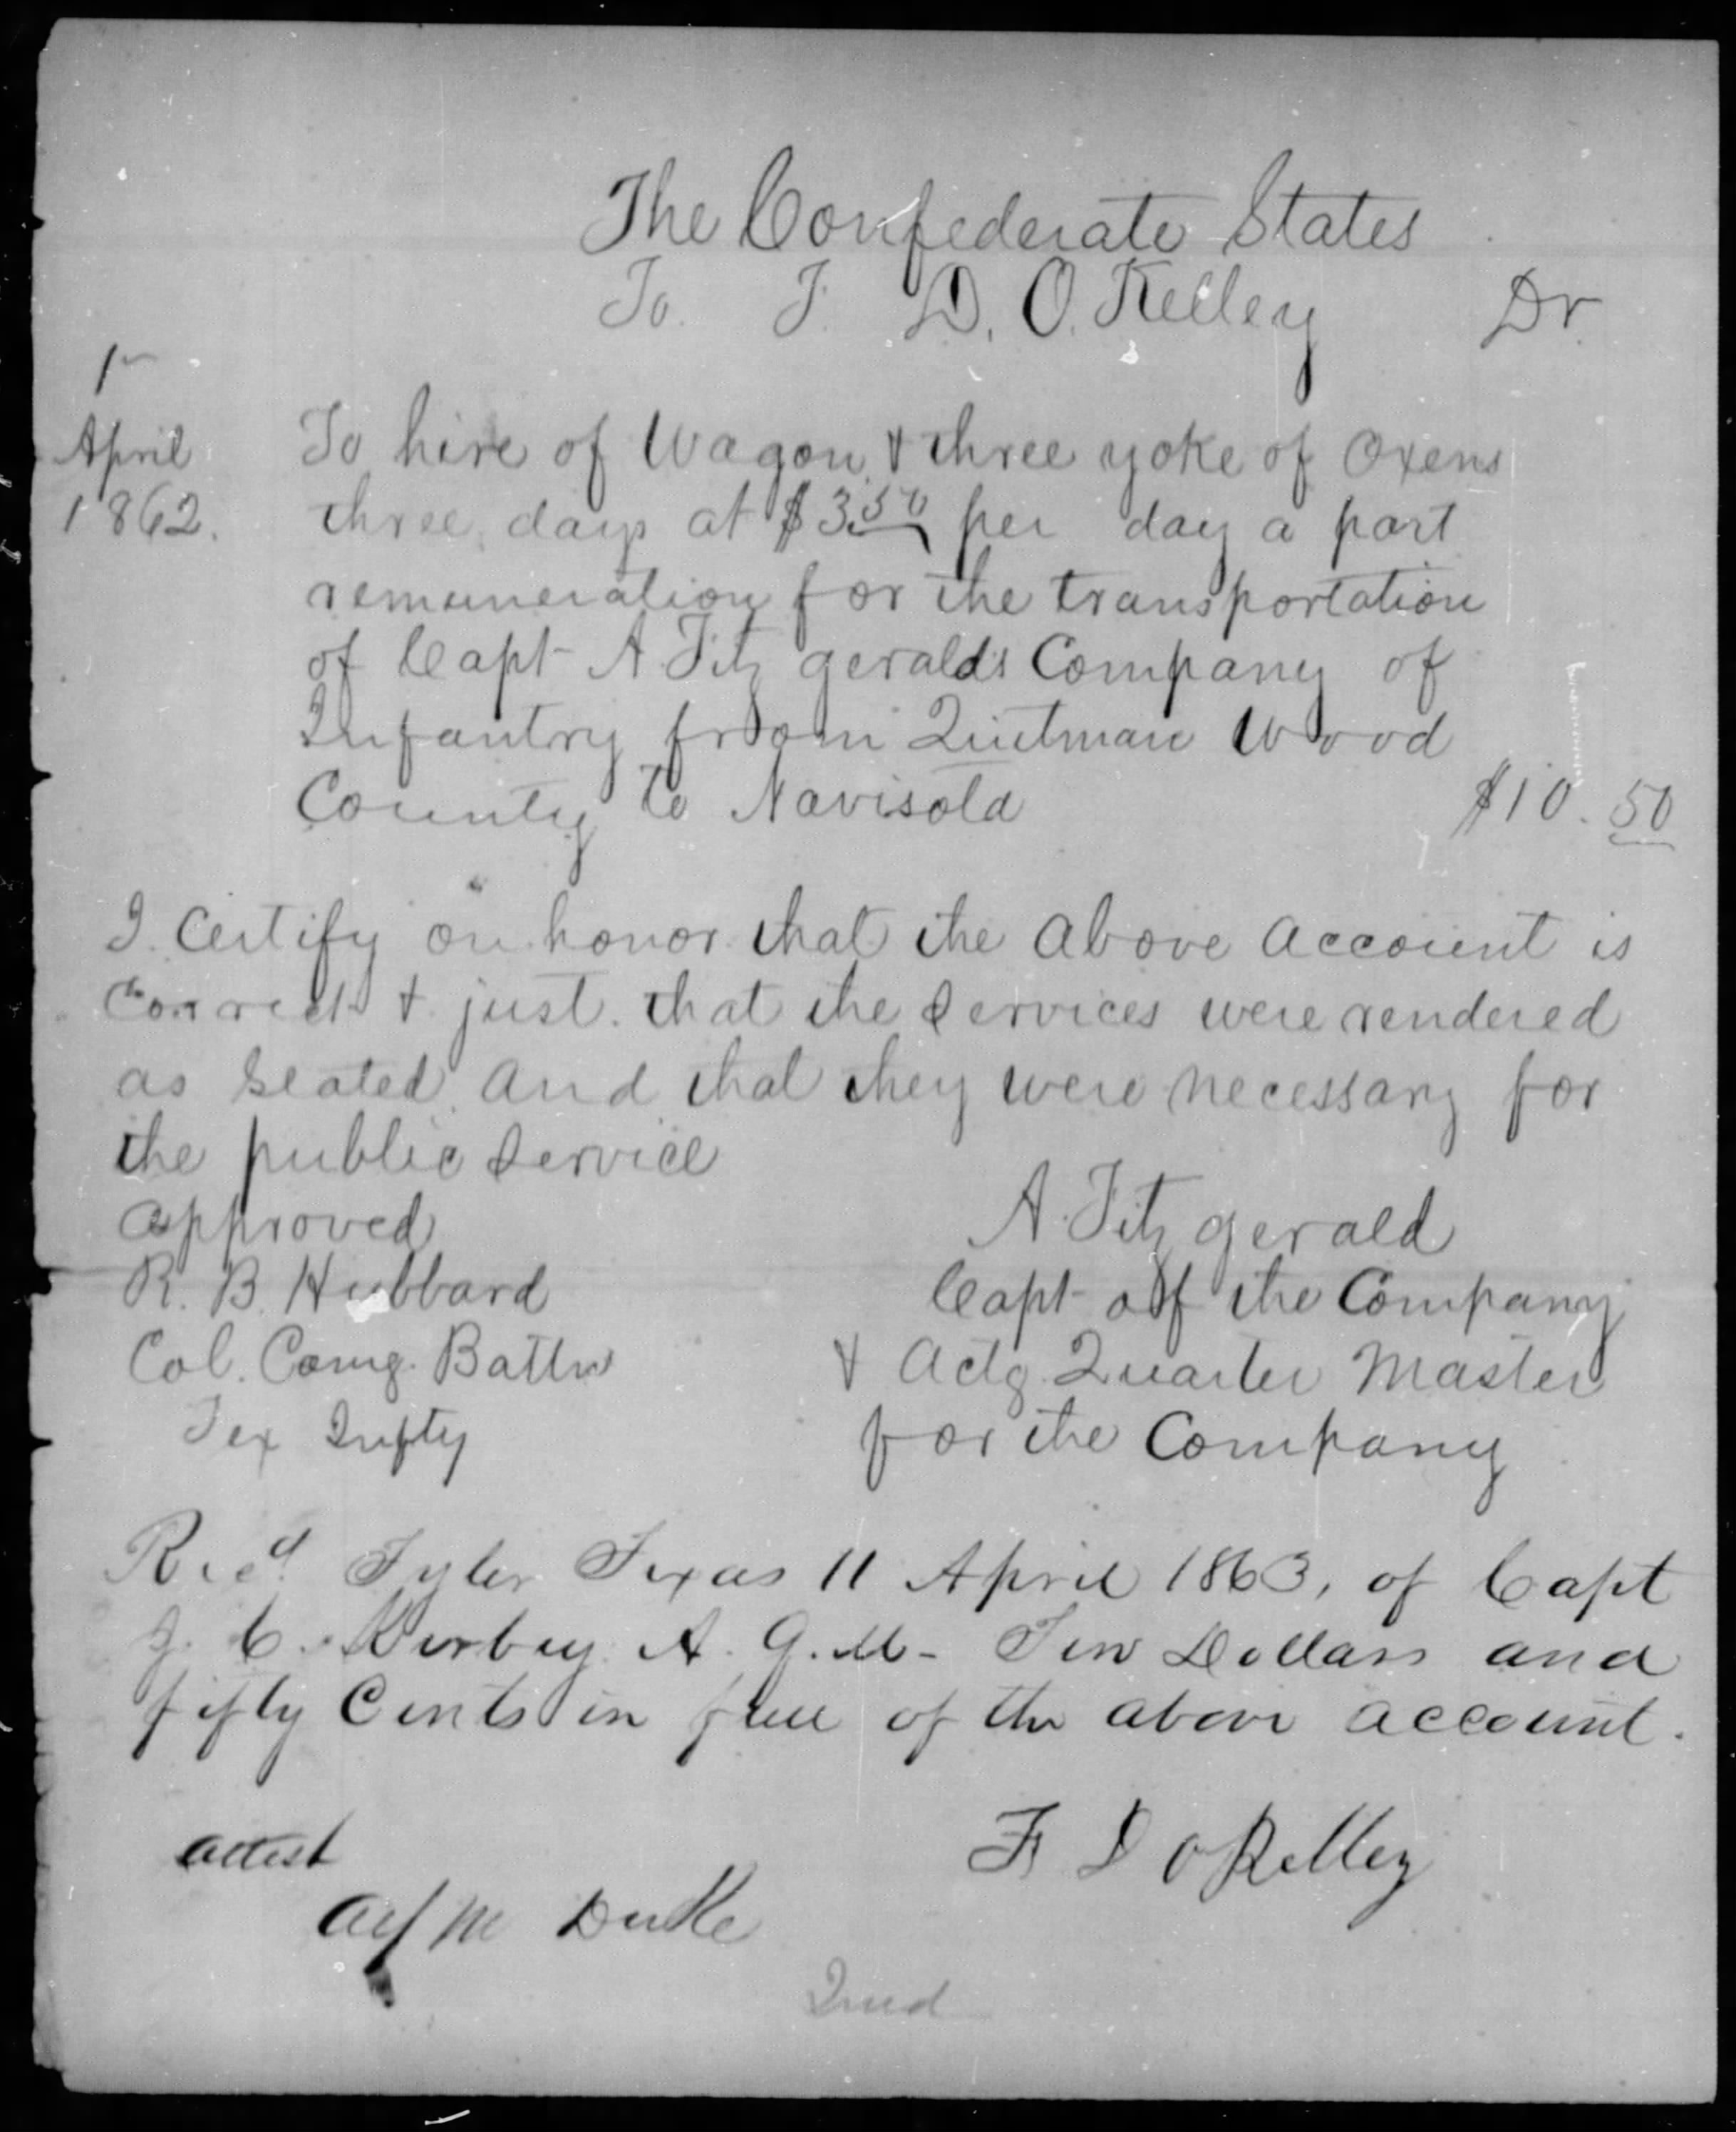 The Confederate States
To F. D. O. Kelley Dr.
1
April
1862.
To hire of Wagon & three yoke of Oxens
three days at $3.50 per day a part
remuneration for the transportation
of Capt A Fitz geralds Company of
Infantry from Quitman Wood
County to Navisota $10.50
I Certify on honor that the Above Account is
Correct & just. that the Services were rendered
as Stated and that they were necessary for
the public Service
approved
R. B. Hubbard
Col. Comg. Battn
Tex Infty
A. Fitz gerald
Capt of the Company
& Actg Quarter Master
for the Company
Recd. Tyler Texas 11 April 1863, of Capt
J. C. Kirbey A. Q. M- Ten Dollars and
fifty Cents in full of the above account.
F D OKelley
attest
Alf M Duke